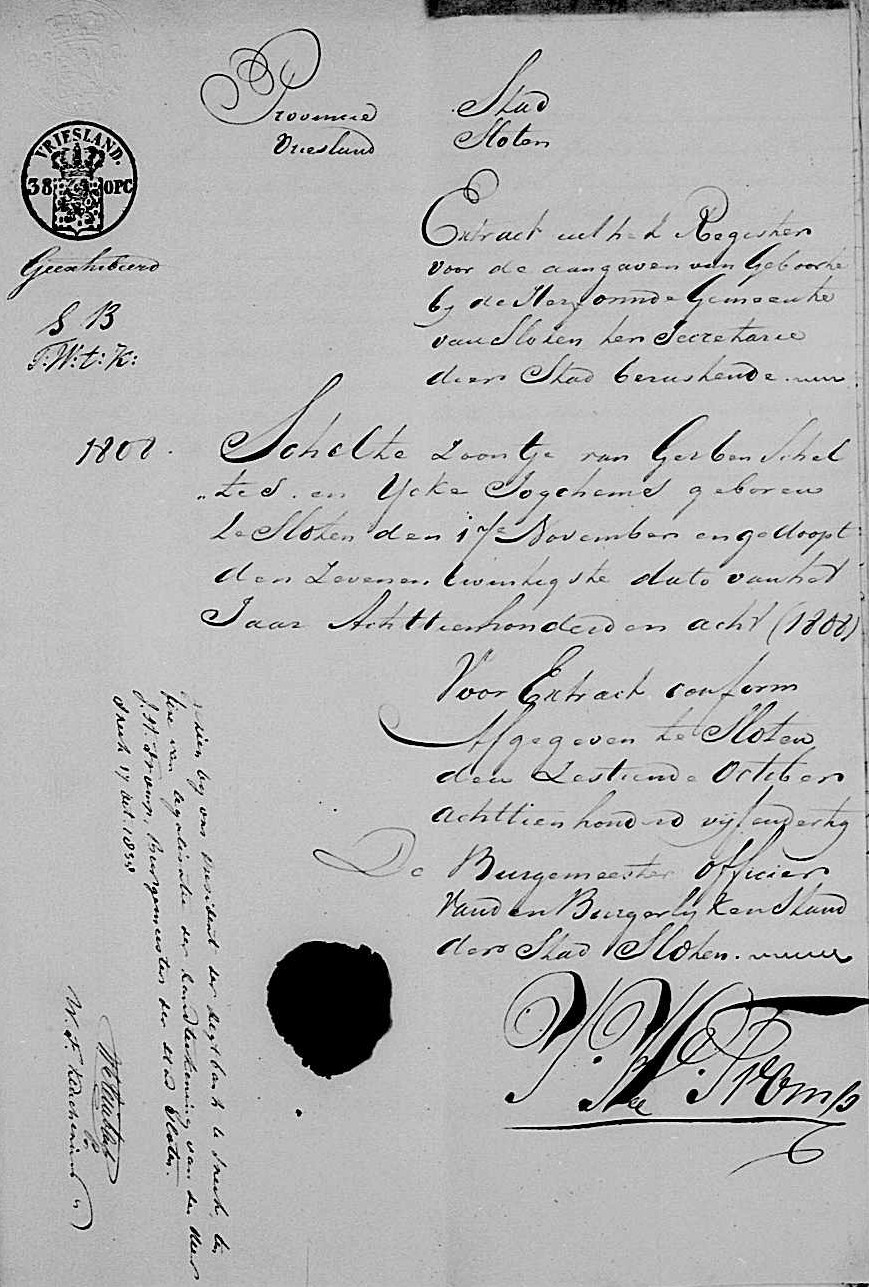 Provincie
Vriesland
Stad
Sloten
VRIESLAND.
38 OPC
Geexhibeerd
S B
T: W: t: K:
Extract uit het Register
voor de aangaven van Geboorte
by de Herformde Gemeente
van Sloten ter Secretarie
dier Stad berustende
1808.
Scholte Zoontje van Gerben Schol
„tes. en Ycke Jogchems geboren
te Sloten den 17e November en gedoopt
den Zevenen twintigste dato van het
Jaar Achttienhonderd en acht (1808)
Voor Extract conform
Afgegeven te Sloten
den Zestiende October
achttienhonderd vyfendertig
De Burgemeester Officier
van den Burgerlyken Stand
der Stad Sloten.
Tromp
Gezien by ons President der Regtbank te Sneek, ter
fine van legalisatie der handtekening van den Heer
Tromp, Burgemeester der stad Sloten.
Sneek 17 Oct 1835